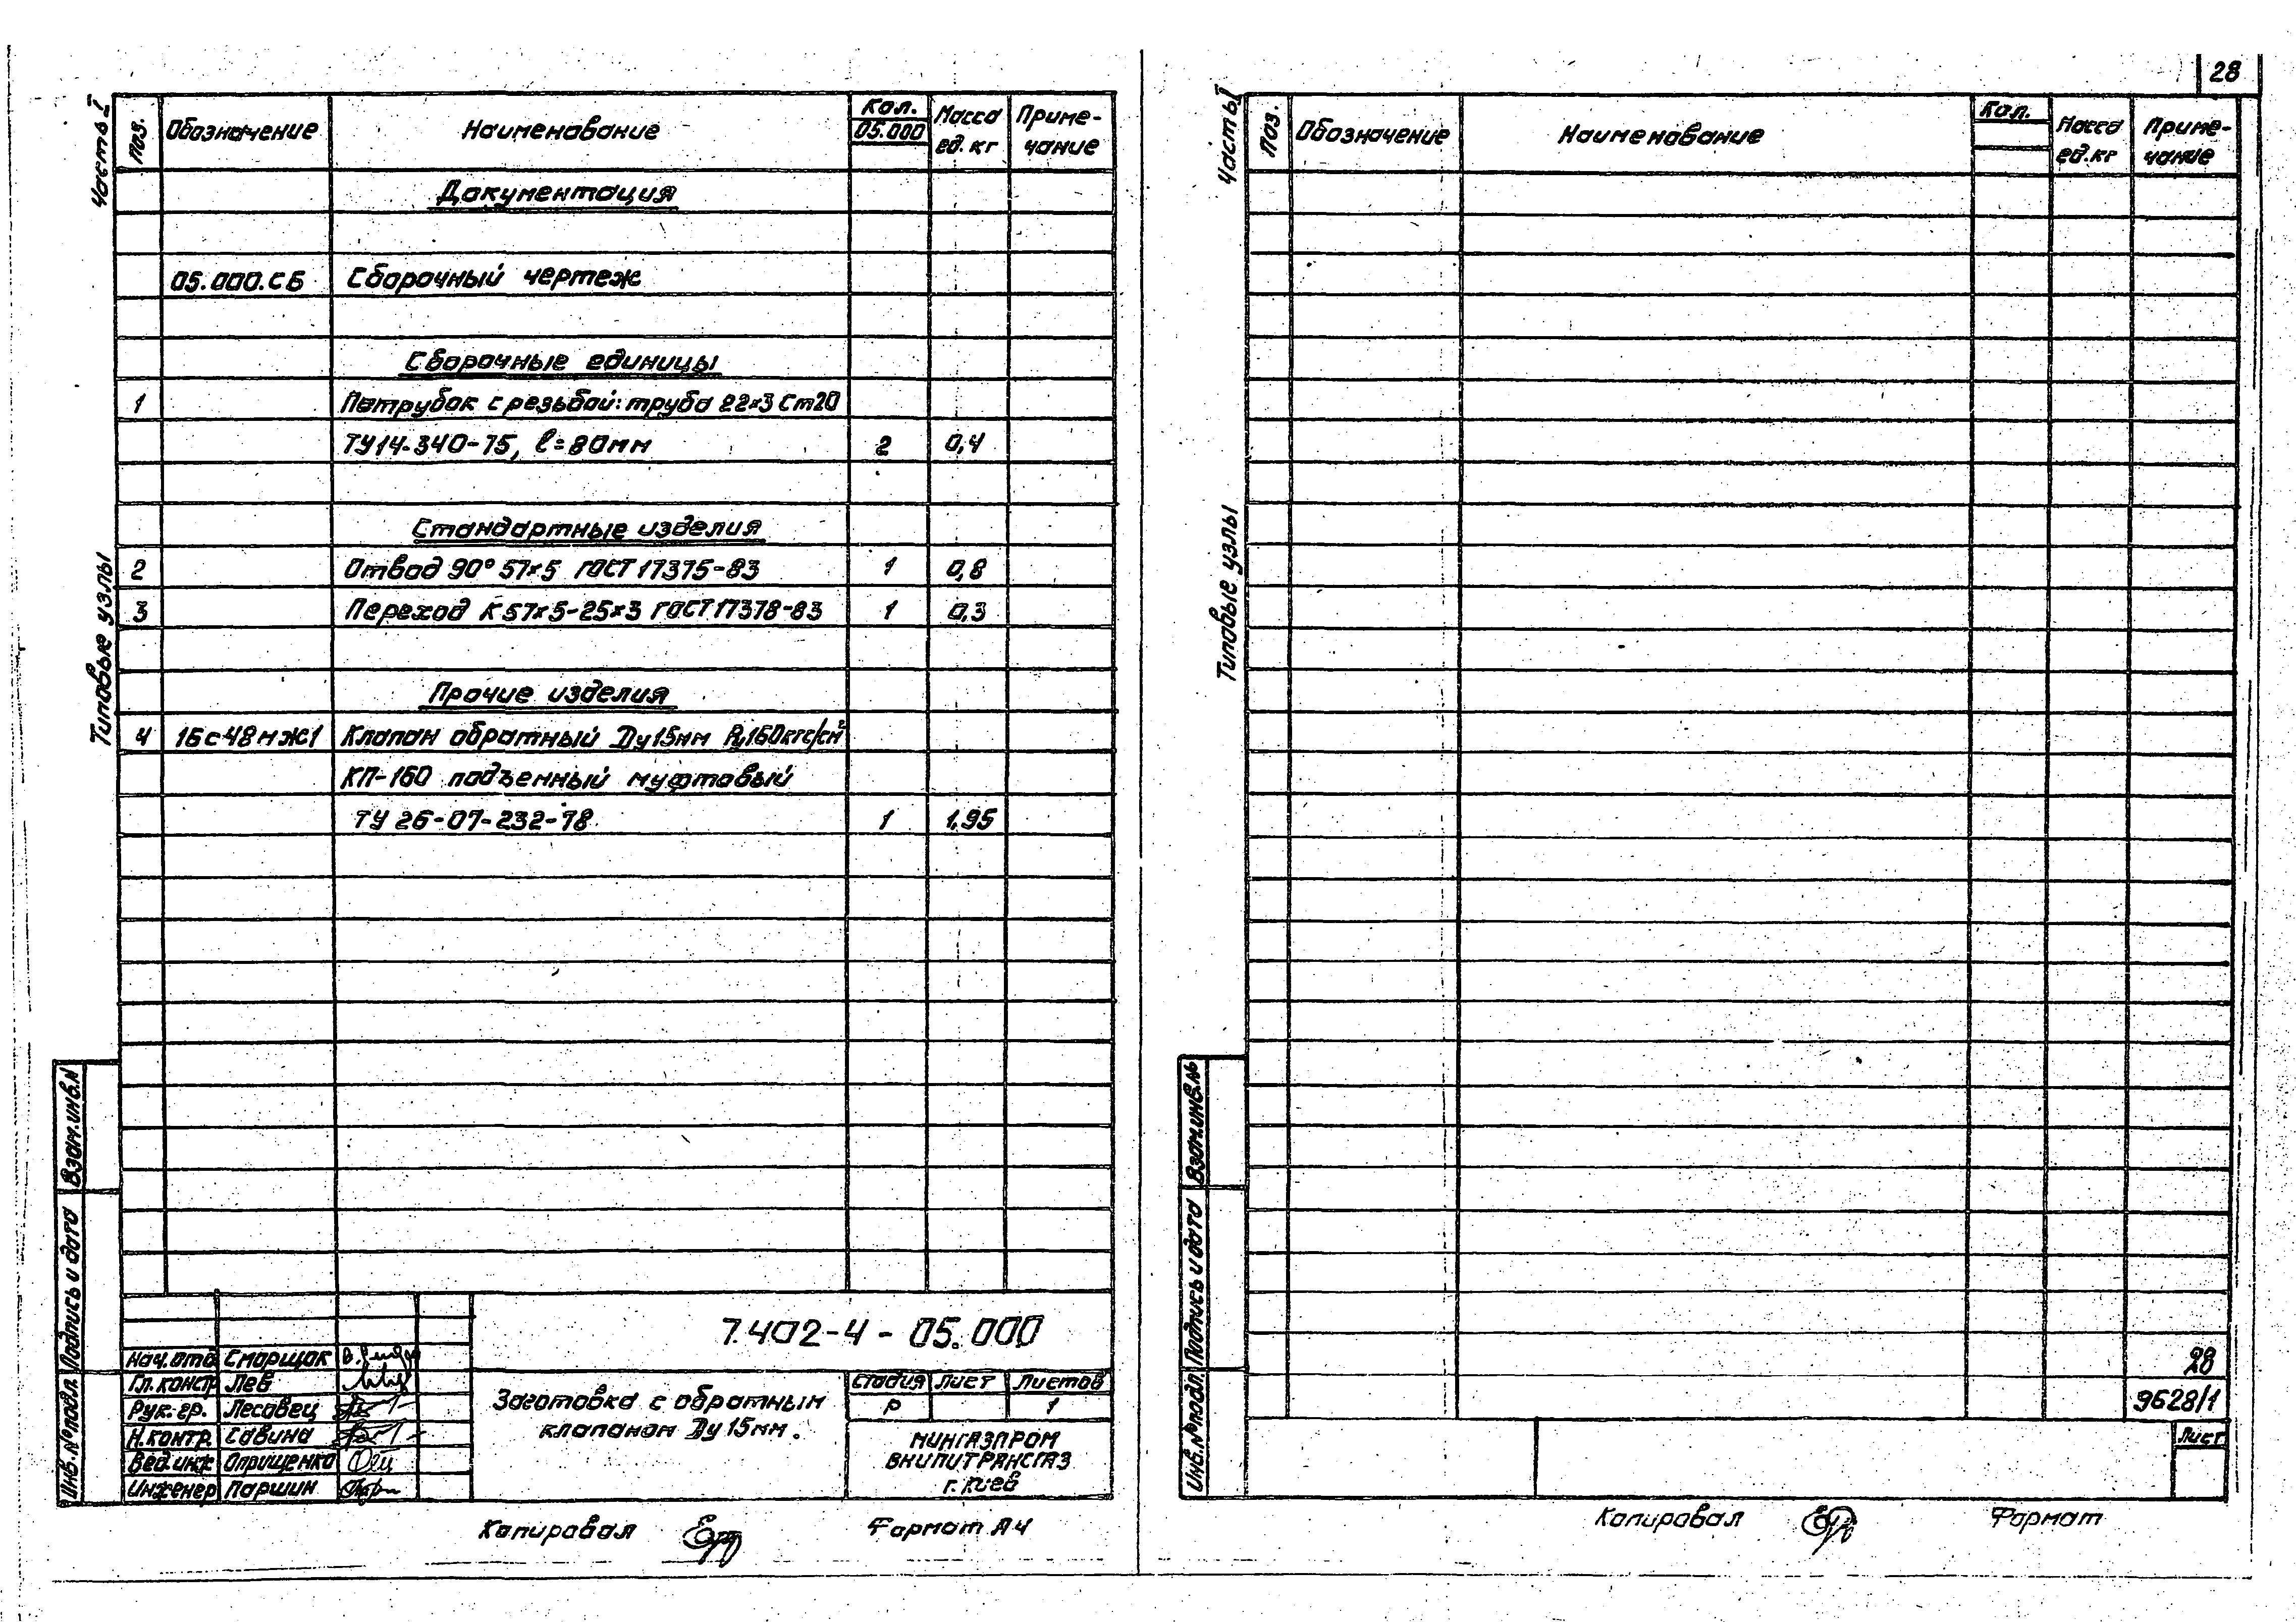 Часть I
Поз. Обозначение Наименование Кол. 05.000 Масса ед. кг Приме-чание
Документация
05.000.СБ Сборочный чертеж
Сборочные единицы
1 Патрубок с резьбой: труба 22×3 Ст20
ТУ14-340-75, l=80мм 2 0,4
Стандартные изделия
2 Отвод 90° 57×5 ГОСТ 17375-83 1 0,8
3 Переход К57×5-25×3 ГОСТ 17378-83 1 0,3
Прочие изделия
4 16с48нж1 Клапан обратный Ду15мм Ру160кгс/см²
КП-160 подъемный муфтовый
ТУ 26-07-232-78 1 1,95
Типовые узлы
Взам.инв.N
Подпись и дата
Инв.№подл.
7.402-4-05.000
Нач.отд Сморщок
Гл.констр Лев
Рук.гр. Лесовец
Н.контр. Савина
Вед.инж Оприщенко
Инженер Паршин
Заготовка с обратным
клапаном Ду 15мм.
Стадия Лист Листов
Р 1
МИНГАЗПРОМ
ВНИПИТРАНСГАЗ
г. Киев
Копировал
Формат А4
28
Часть I
Поз. Обозначение Наименование Кол. Масса ед.кг Приме-чание
Типовые узлы
Взам.инв.№
Подпись и дата
Инв.№подл.
28
9628/1
Лист
Копировал
Формат